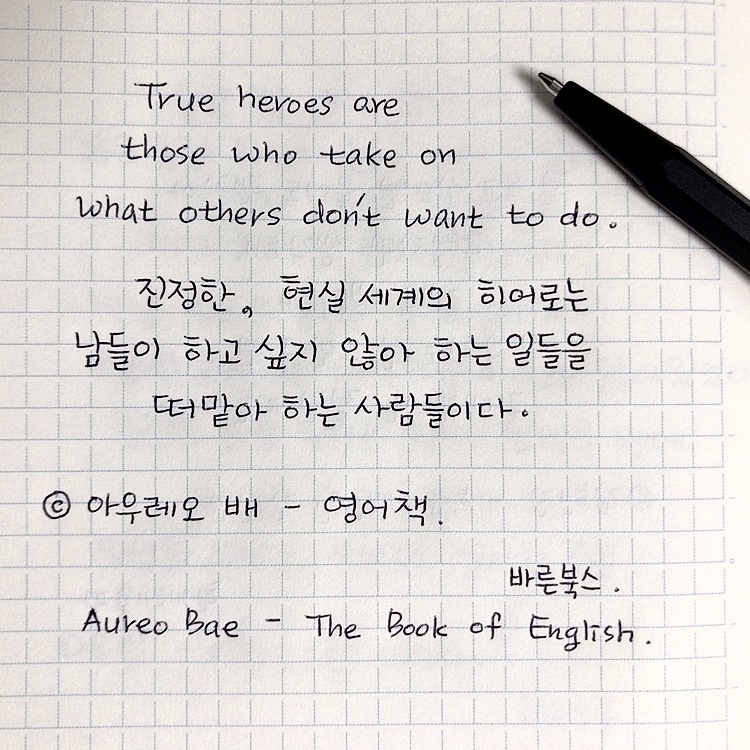 True heroes are
those who take on
what others don't want to do.
진정한, 현실 세계의 히어로는
남들이 하고 싶지 않아 하는 일들을
떠맡아 하는 사람들이다.
© 아우레오 배 - 영어책.
바른북스.
Aureo Bae - The Book of English.